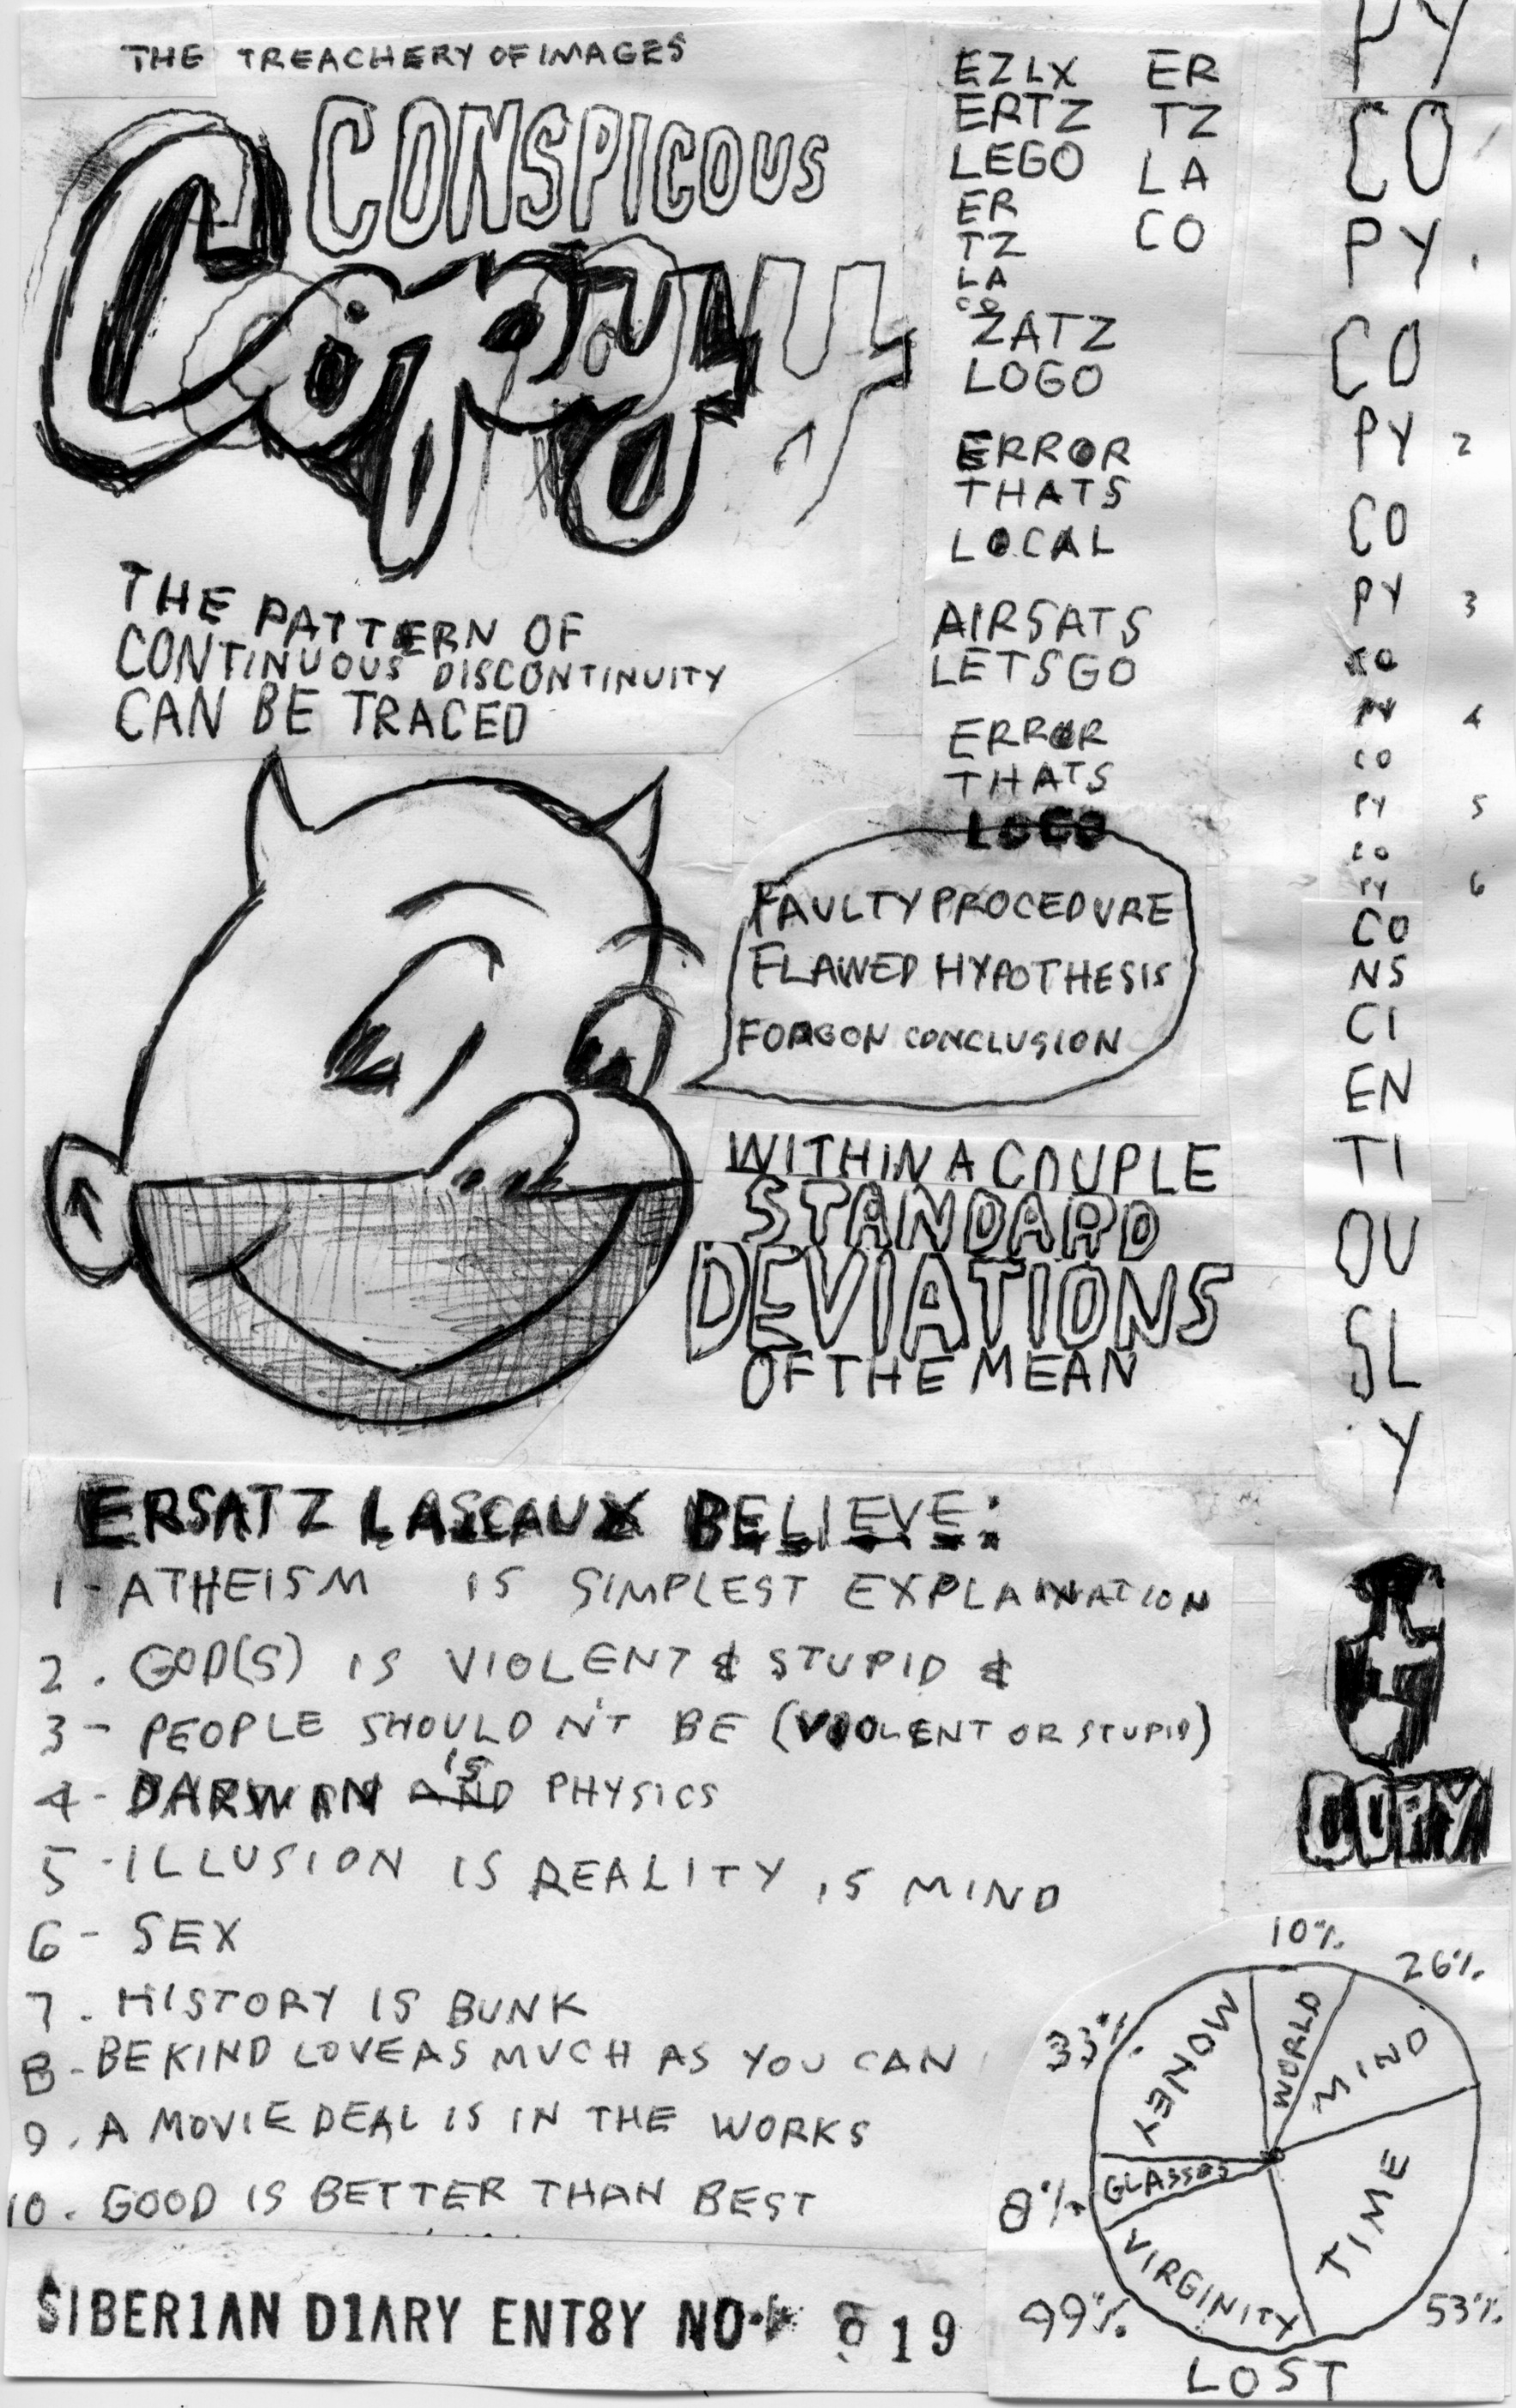 THE TREACHERY OF IMAGES
CONSPICOUS
COPY
THE PATTERN OF
CONTINUOUS DISCONTINUITY
CAN BE TRACED
EZLX
ERTZ
LEGO
ER
TZ
LA
CO
ZATZ
LOGO
ERROR
THATS
LOCAL
AIRSATS
LETSGO
ERROR
THATS
LOGO
ER
TZ
LA
CO
FAULTY PROCEDURE
FLAWED HYPOTHESIS
FORGON CONCLUSION
WITHIN A COUPLE
STANDARD
DEVIATIONS
OF THE MEAN
PY
CO
PY 1
CO
PY 2
CO
PY 3
CO
PY 4
CO
PY 5
CO
PY 6
CO
NS
CI
EN
TI
OU
SL
Y
COPY
ERSATZ LASCAUX BELIEVE:
1- ATHEISM IS SIMPLEST EXPLAINATION
2. GOD(S) IS VIOLENT & STUPID &
3- PEOPLE SHOULDN'T BE (VIOLENT OR STUPID)
4- DARWIN IS AND PHYSICS
5- ILLUSION IS REALITY IS MIND
6- SEX
7. HISTORY IS BUNK
8- BE KIND LOVE AS MUCH AS YOU CAN
9. A MOVIE DEAL IS IN THE WORKS
10. GOOD IS BETTER THAN BEST
SIBER1AN D1ARY ENT8Y NO. 819
10%
26%
33%
8%
99%
53%
MONEY
WORLD
MIND
GLASSES
TIME
VIRGINITY
LOST